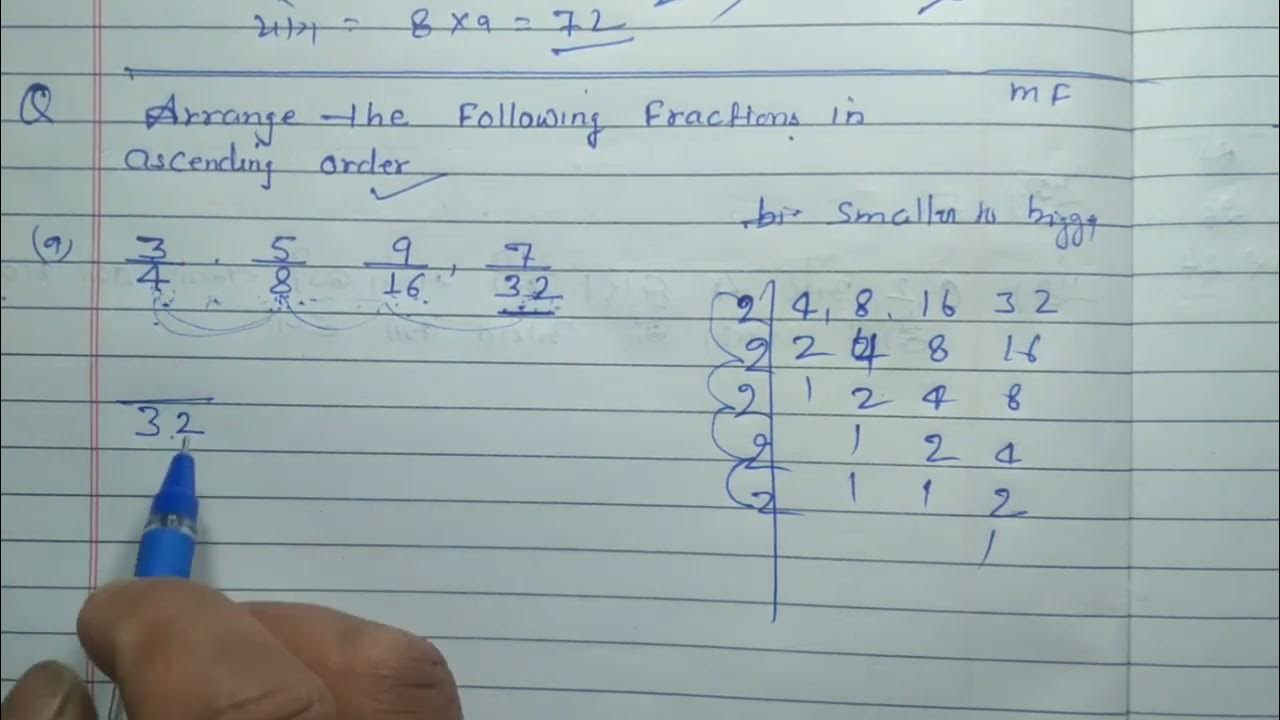 = 8 × 9 = 72
Q Arrange the Following Fractions in
ascending order
m F
smaller to bigger
(a) 3/4 , 5/8 9/16 , 7/32
2 | 4, 8, 16 32
2 | 2 4 8 16
2 | 1 2 4 8
2 | 1 2 4
2 | 1 1 2
1
32